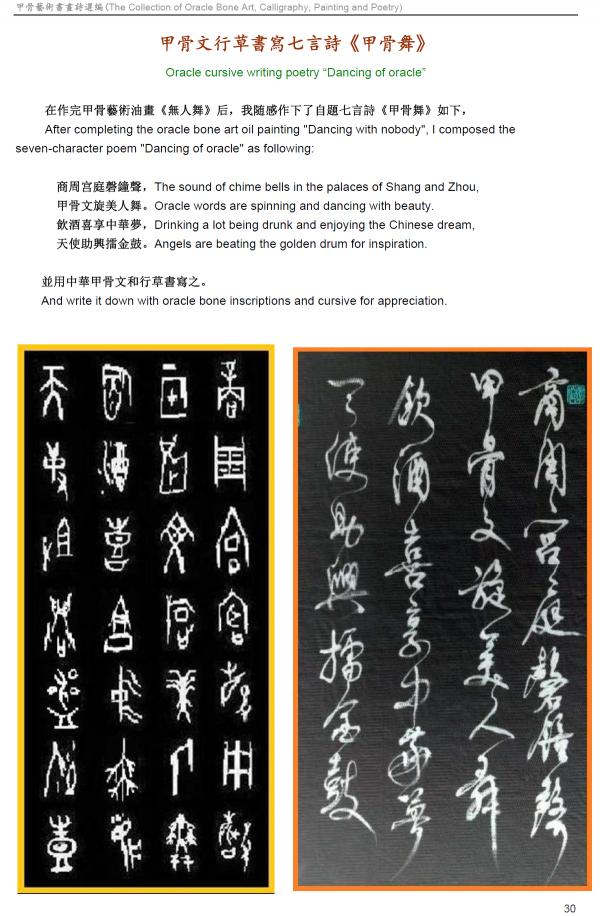 甲骨藝術書畫詩選編(The Collection of Oracle Bone Art, Calligraphy, Painting and Poetry)
甲骨文行草書寫七言詩《甲骨舞》
Oracle cursive writing poetry “Dancing of oracle”
在作完甲骨藝術油畫《無人舞》后，我随感作下了自題七言詩《甲骨舞》如下，
After completing the oracle bone art oil painting "Dancing with nobody", I composed the
seven-character poem "Dancing of oracle" as following:
商周宫庭磬鐘聲，The sound of chime bells in the palaces of Shang and Zhou,
甲骨文旋美人舞。Oracle words are spinning and dancing with beauty.
飲酒喜享中華夢，Drinking a lot being drunk and enjoying the Chinese dream,
天使助興擂金鼓。Angels are beating the golden drum for inspiration.
並用中華甲骨文和行草書寫之。
And write it down with oracle bone inscriptions and cursive for appreciation.
商周宮庭磬鐘聲
甲骨文旋美人舞
飲酒喜享中華夢
天使助興擂金鼓
30